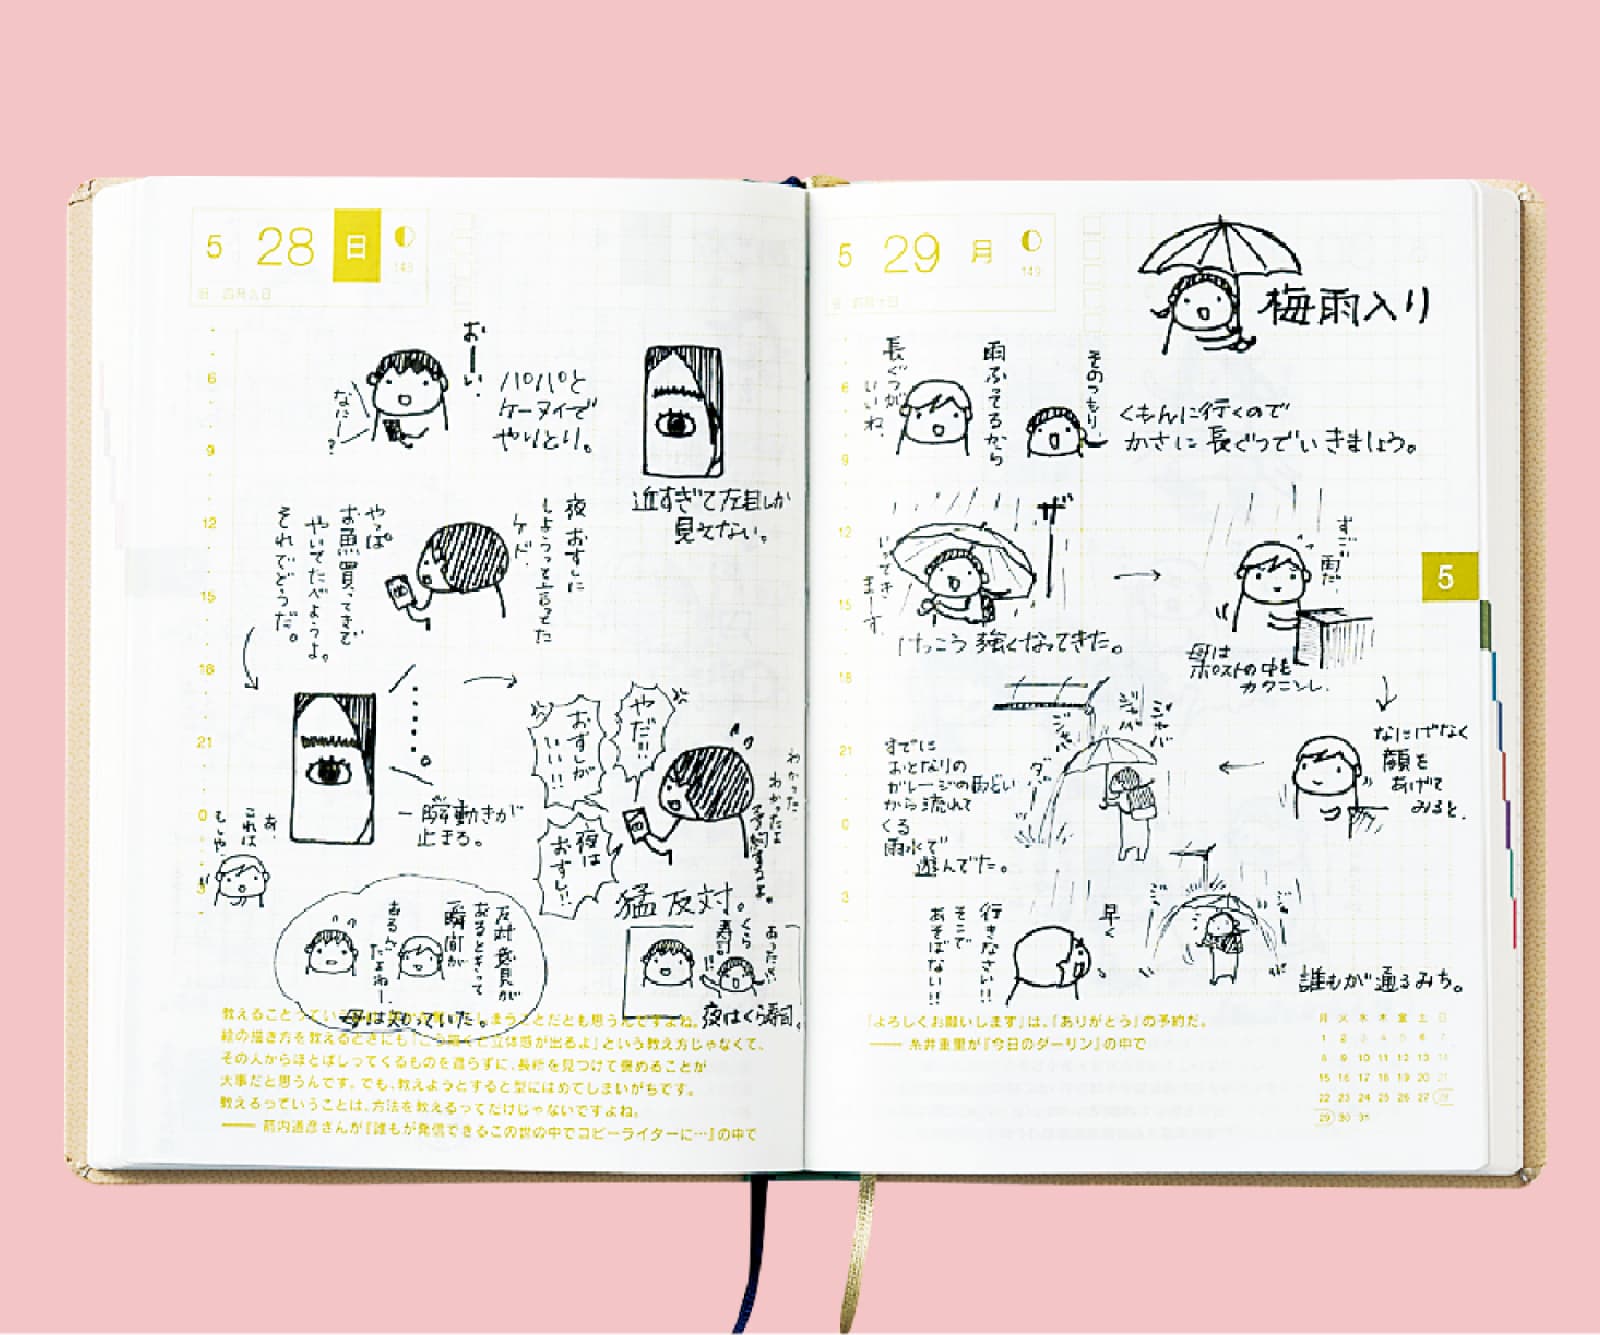 5 28 日
149
旧 四月九日
6
9
12
15
18
21
0
3
おーい。
なにー?
パパと
ケータイで
やりとり。
近すぎて左目しか
見えてない。
夜おすしに
しようって言ってた
ケド、
やっぱ
お魚買ってきて
やいてたべようよ。
それでどうだ。
・・・・・。
一瞬動きが
止まる。
あ、
これは
もしや。
やだ!!
おすしが
いい!!
夜は
おすし!!
わかった
わかったよ
猛反対。
反対意見が
あるときって
瞬間が
あるんだよねー。
母は失っていた。
あったかい
くら
寿司!!
夜はくら寿司。
絵の描き方を教えるときにも「こう描くと立体感が出るよ」という教え方じゃなくて、
その人からほとばしってくるものを遮らずに、長所を見つけて褒めることが
大事だと思うんです。でも、教えようとすると型にはめてしまいがちです。
教えるっていうことは、方法を教えるってだけじゃないですよね。
—— 箭内道彦さんが『誰もが発信できるこの世の中でコピーライターに…』の中で
5 29 月
149
旧 四月十日
6
9
12
15
18
21
0
3
梅雨入り
雨ふってるから
長ぐつが
いいね。
そのつもり。
くもんに行くので
かさに長ぐつでいきましょう。
ザー
いってきまーす。
けっこう強くなってきた。
すごい雨だ。
母は
ポストの中を
カクニンし、
なにげなく
顔を
あげて
みると、
ジャバ
ジャバ
すでに
おとなりの
ガレージの雨どい
から流れて
くる
雨水で
遊んでた。
早く
行きなさい!!
そこで
あそばない!!
誰もが通るみち。
「よろしくお願いします」は、「ありがとう」の予約だ。
—— 糸井重里が『今日のダーリン』の中で
5
月 火 水 木 金 土 日
1 2 3 4 5 6 7
8 9 10 11 12 13 14
15 16 17 18 19 20 21
22 23 24 25 26 27 28
29 30 31